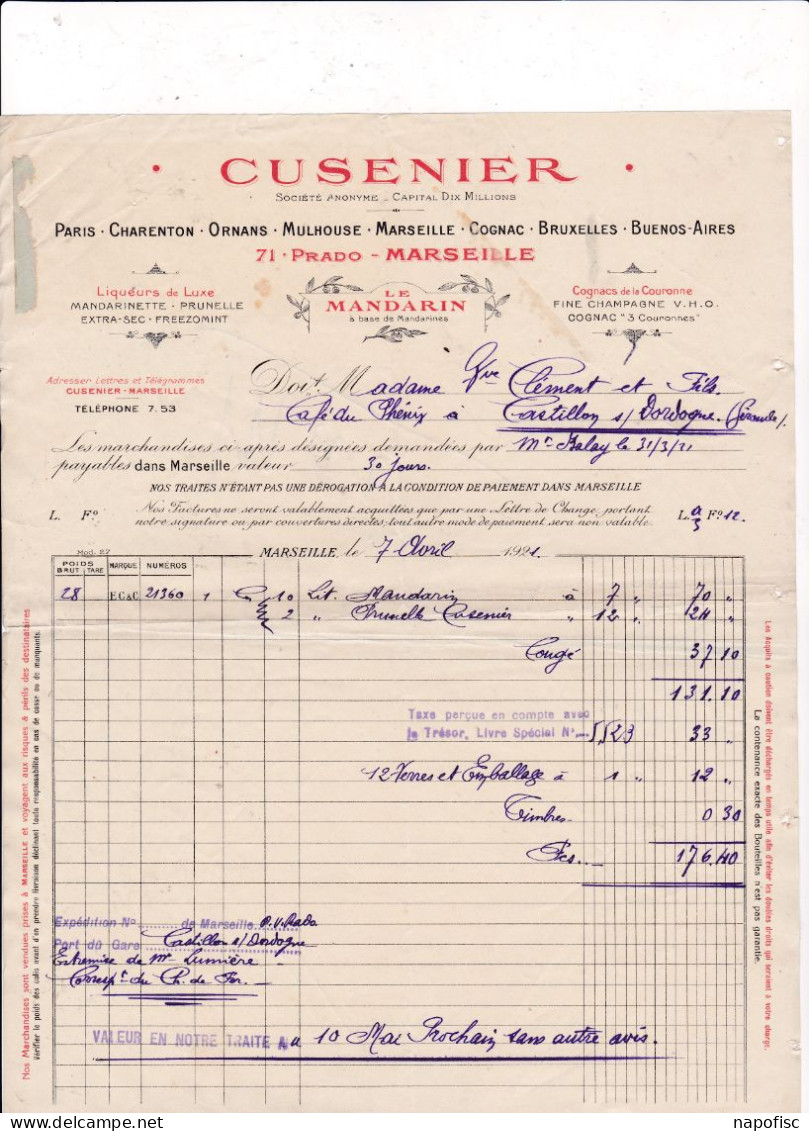 CUSENIER
SOCIÉTÉ ANONYME - CAPITAL DIX MILLIONS
PARIS · CHARENTON · ORNANS · MULHOUSE · MARSEILLE · COGNAC · BRUXELLES · BUENOS-AIRES
71 · PRADO - MARSEILLE
Liqueurs de Luxe
MANDARINETTE · PRUNELLE
EXTRA-SEC · FREEZOMINT
LE
MANDARIN
à base de Mandarines
Cognacs de la Couronne
FINE CHAMPAGNE V.H.O.
COGNAC "3 Couronnes"
Adresser Lettres et Télégrammes
CUSENIER-MARSEILLE
TÉLÉPHONE 7.53
Doit Madame Vve Clément et Fils
Café du Phénix à Castillon s/ Dordogne (Gironde)
Les marchandises ci-après désignées demandées par Mr Galay le 31/3/21
payables dans Marseille valeur 30 jours.
NOS TRAITES N'ÉTANT PAS UNE DÉROGATION A LA CONDITION DE PAIEMENT DANS MARSEILLE
L. Fº
Nos Factures ne seront valablement acquittées que par une Lettre de Change, portant
notre signature ou par couvertures directes; tout autre mode de paiement sera non valable.
L. Fº 12.
Mod. 27
MARSEILLE, le 7 Avril 1921.
POIDS BRUT TARE MARQUE NUMÉROS
28 EC&C 21360 1 10 Lit. Mandarin à 7 " 70 "
2 " Prunelle Cusenier " 12 " 24 "
Congé 37 10
131.10
Taxe perçue en compte avec
le Trésor, Livre Spécial Nº 5523 33 "
12 Verres et Emballage à 1 " 12 "
Timbres 0 30
Fcs. 176.40
Expédition Nº de Marseille P.V. Prado
Port dû Gare Castillon s/ Dordogne
Entremise de Mr Lumière
Corresp t du Ch. de Fer.
VALEUR EN NOTRE TRAITE A 10 Mai Prochain sans autre avis.
Nos Marchandises sont vendues prises à MARSEILLE et voyagent aux risques & périls des destinataires
Vérifier le poids des colis avant d'en prendre livraison déclinant toute responsabilité en cas de casse ou de manquants.
Les Acquits à caution doivent être déchargés en temps utile afin d'éviter les doubles droits qui seraient à votre charge.
La contenance exacte des Bouteilles n'est pas garantie.
napofisc